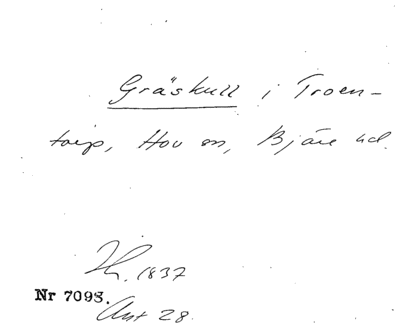 Gräskull i Troen-
torp, Hov sn, Bjäre hd.
H. 1837
Nr 7093.
Ant 28.